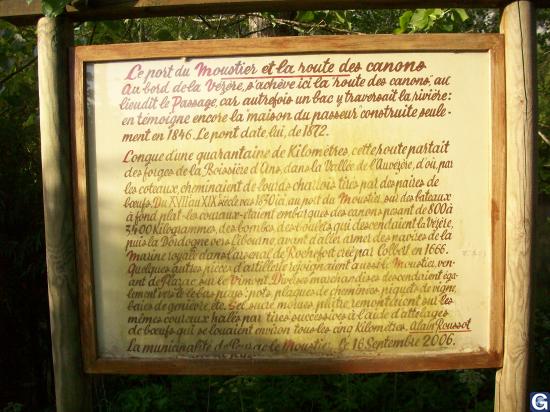 Le port du Moustier et la route des canons
Au bord de la Vézère, s'achève ici la "route des canons", au
lieudit le Passage, car autrefois un bac y traversait la rivière:
en témoigne encore la "maison du passeur" construite seule-
ment en 1846. Le pont date, lui, de 1872.
Longue d'une quarantaine de Kilomètres, cette route partait
des forges de la Boissière d'Ans, dans la Vallée de l'Auvézère, d'où, par
les coteaux, cheminaient de lourds chariots tirés par des paires de
bœufs. Du XVII au XIX siècle vers 1830 à, au port du Moustier, sur des bateaux
à fond plat-les couraux-étaient embarqués des canons pesant de 800 à
3400 Kilogrammes, des bombes, des boulets, qui descendaient la Vézère,
puis la Dordogne vers Libourne, avant d'aller armer des navires de la
Marine royale dans l'arsenal de Rochefort créé par Colbert en 1666.
Quelques autres pièces d'artillerie rejoignaient aussi le Moustier, ven-
ant de Plazac sur le Vimont. Diverses marchandises descendaient éga-
lement vers le bas pays: pots, plaques de cheminées, piquets de vigne,
baies de genièvre, etc. Sel, sucre, morues, plâtre, remontaient sur les
mêmes couraux halés par tires successives à l'aide d'attelages
de bœufs qui se louaient environ tous les cinq kilomètres. Alain Roussot
La municipalité de Le Moustier. Le 16 Septembre 2006.
G